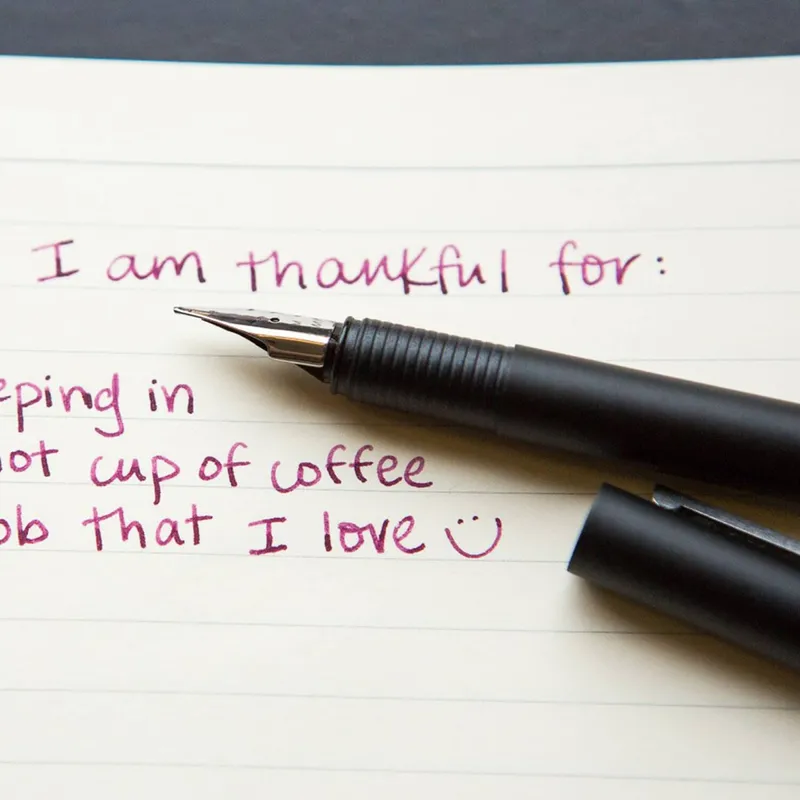 I am thankful for:
eping in
ot cup of coffee
ob that I love :)